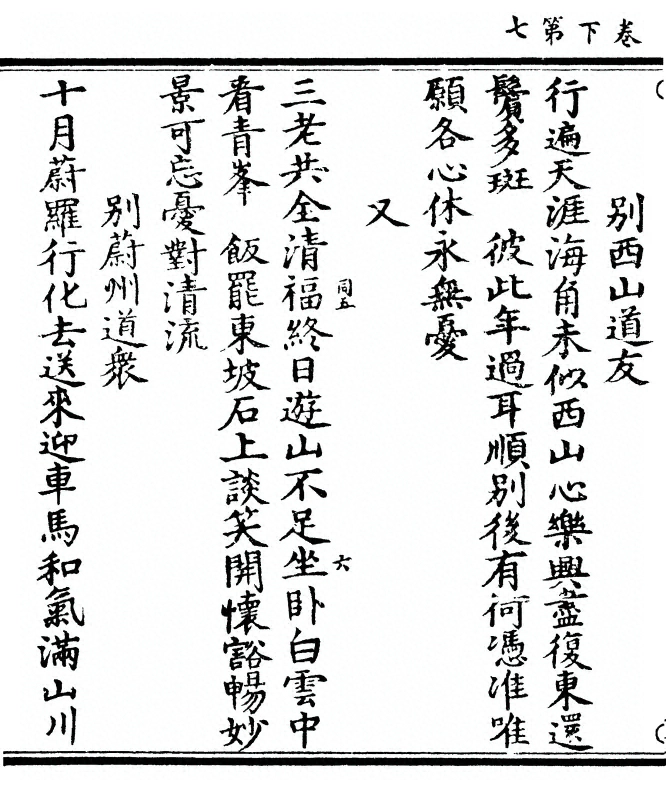 卷下第七
別西山道友
行遍天涯海角未似西山心樂興盡復東還
鬢多斑　彼此年過耳順別後有何憑准唯
願各心休永無憂
又
三老共全清福終日遊山不足坐卧白雲中
同五
六
看青峯　飯罷東坡石上談笑開懷豁暢妙
景可忘憂對清流
別蔚州道衆
十月蔚羅行化去送來迎車馬和氣滿山川